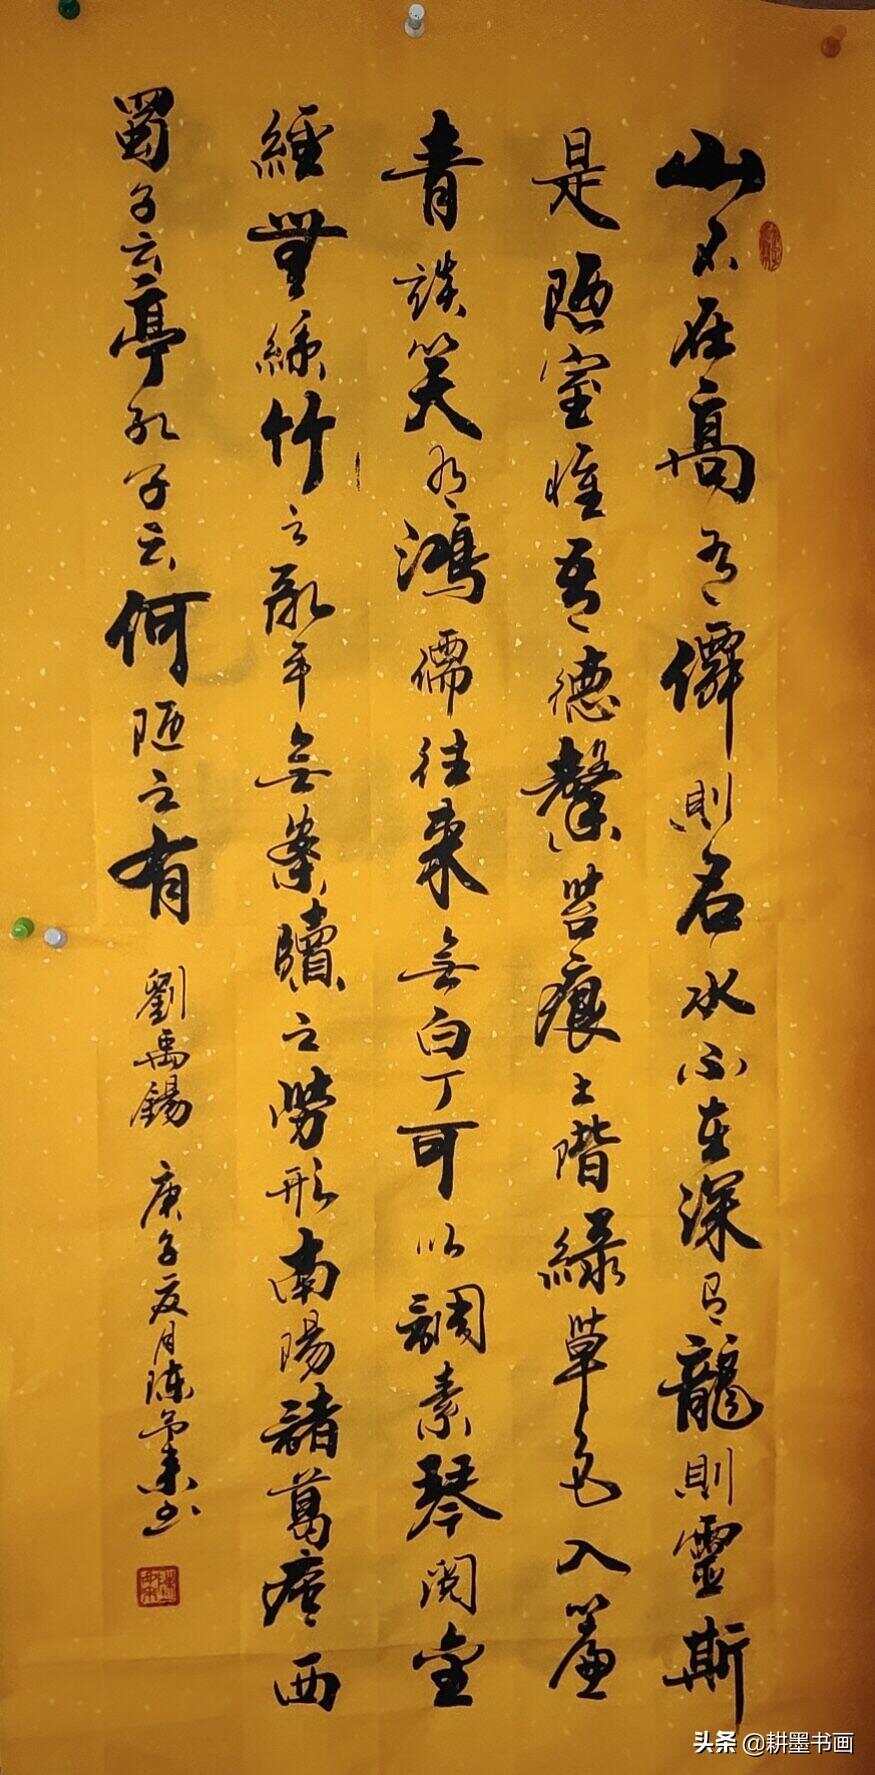 山不在高有僊則名水不在深有龍則靈斯
是陋室惟吾德馨苔痕上階緑草色入簾
青談笑有鴻儒往来無白丁可以調素琴閱金
經無絲竹之亂耳無案牘之勞形南陽諸葛廬西
蜀子云亭孔子云何陋之有 劉禹錫 庚子夏月陳書
头条 @耕墨书画